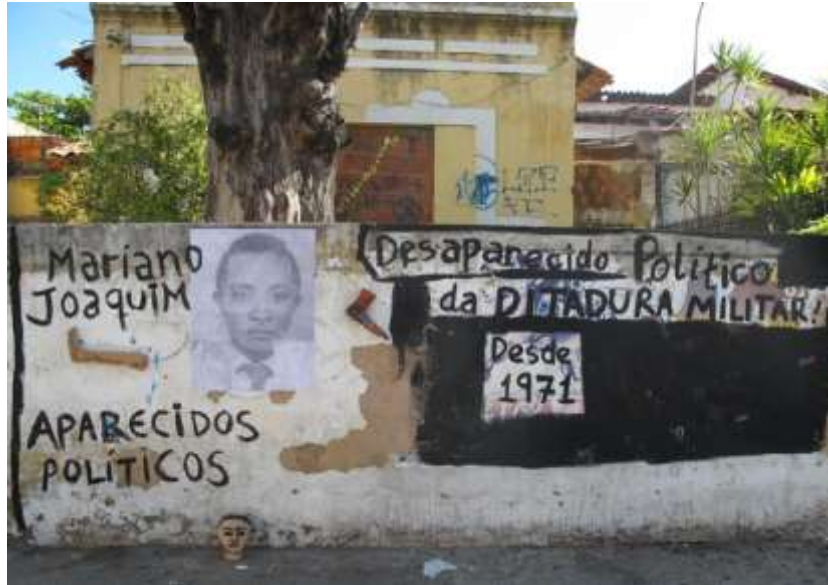 Mariano
JOAQUIM
APARECIDOS
POLÍTICOS
Desaparecido Político
da DITADURA MILITAR!
Desde
1971